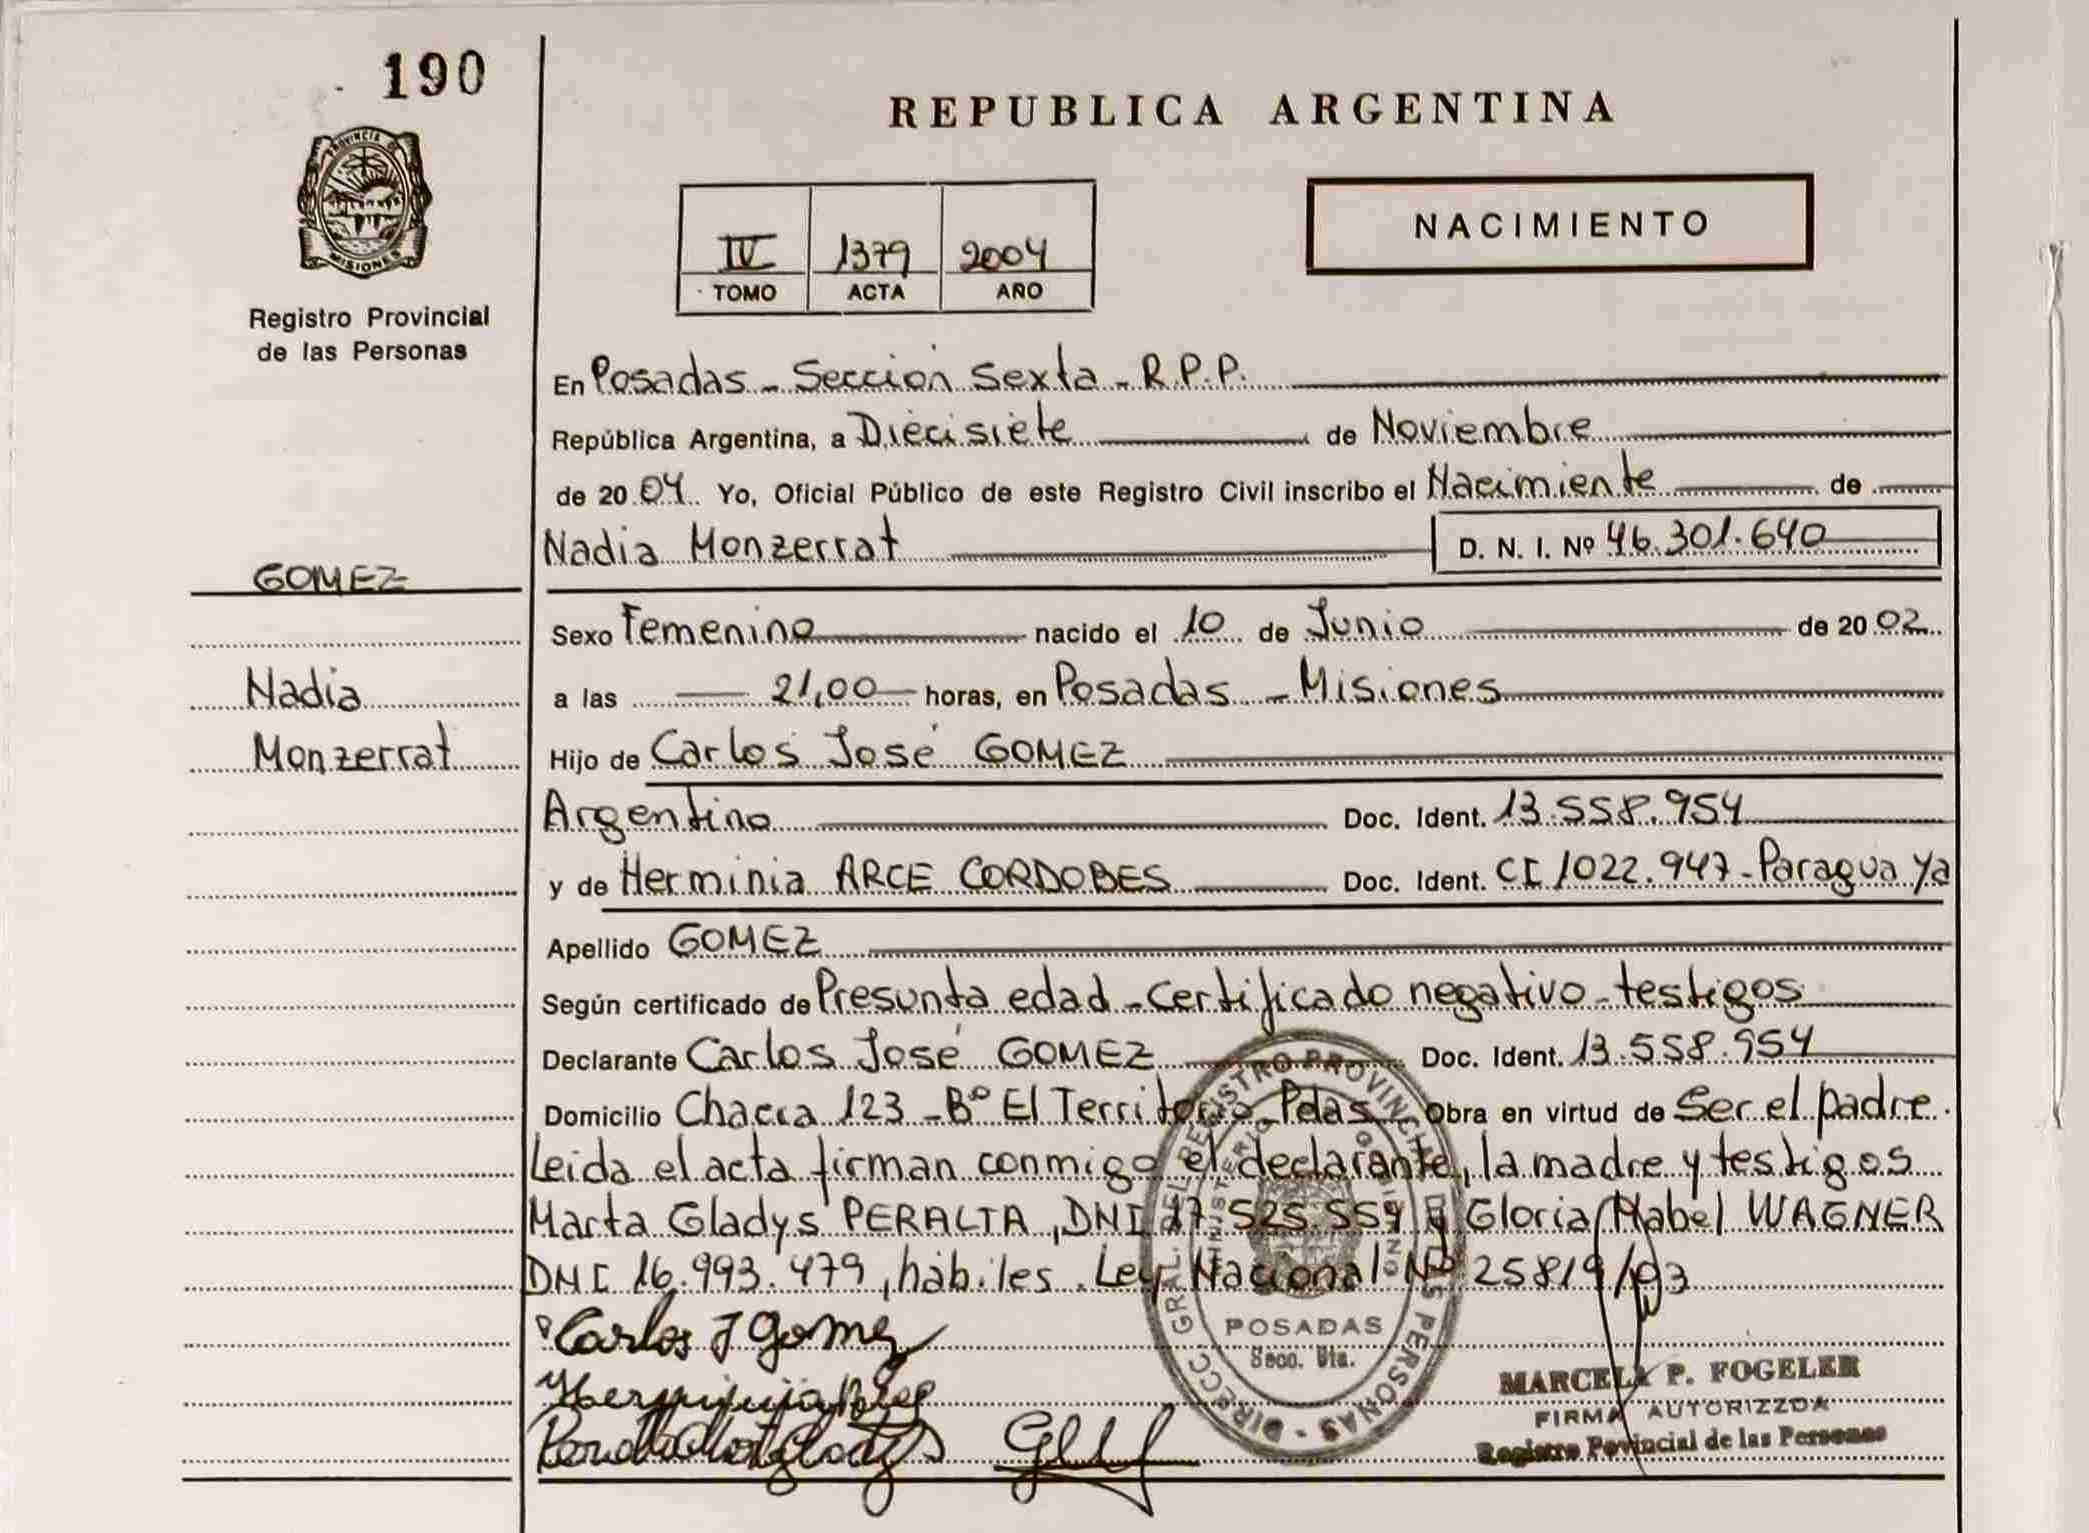 190
REPUBLICA ARGENTINA
PROVINCIA DE
MISIONES
NACIMIENTO
IV 1379 2004
TOMO ACTA AÑO
Registro Provincial
de las Personas
En Posadas - Sección Sexta - R.P.P.
República Argentina, a Diecisiete de Noviembre
de 2004. Yo, Oficial Público de este Registro Civil inscribo el Nacimiento de
Nadia Monzerrat D. N. I. Nº 46.301.640
GOMEZ
Sexo Femenino nacido el 10 de Junio de 2002
Nadia
a las 21,00 horas, en Posadas - Misiones
Monzerrat
Hijo de Carlos José GOMEZ
Argentino Doc. Ident. 13.558.954
y de Herminia ARCE CORDOBES Doc. Ident. CI 1022.947- Paraguaya
Apellido GOMEZ
Según certificado de Presunta edad - Certificado negativo - testigos
Declarante Carlos José GOMEZ Doc. Ident. 13.558.954
Domicilio Chacra 123 - Bº El Territorio Pdas Obra en virtud de Ser el padre.
Leida el acta firman conmigo el declarante, la madre y testigos
Marta Gladys PERALTA, DNI 17.525.559 y Gloria Mabel WAGNER
DNI 16.993.479, hábiles. Ley Nacional Nº 25819/03
Carlos J Gomez
DIRECC. GRAL. DEL REGISTRO PROVINCIAL DE LAS PERSONAS
MINISTERIO GOBIERNO
POSADAS
Secc. 6ta.
MARCELA P. FOGELER
FIRMA AUTORIZZDA
Registro Povincial de las Personas